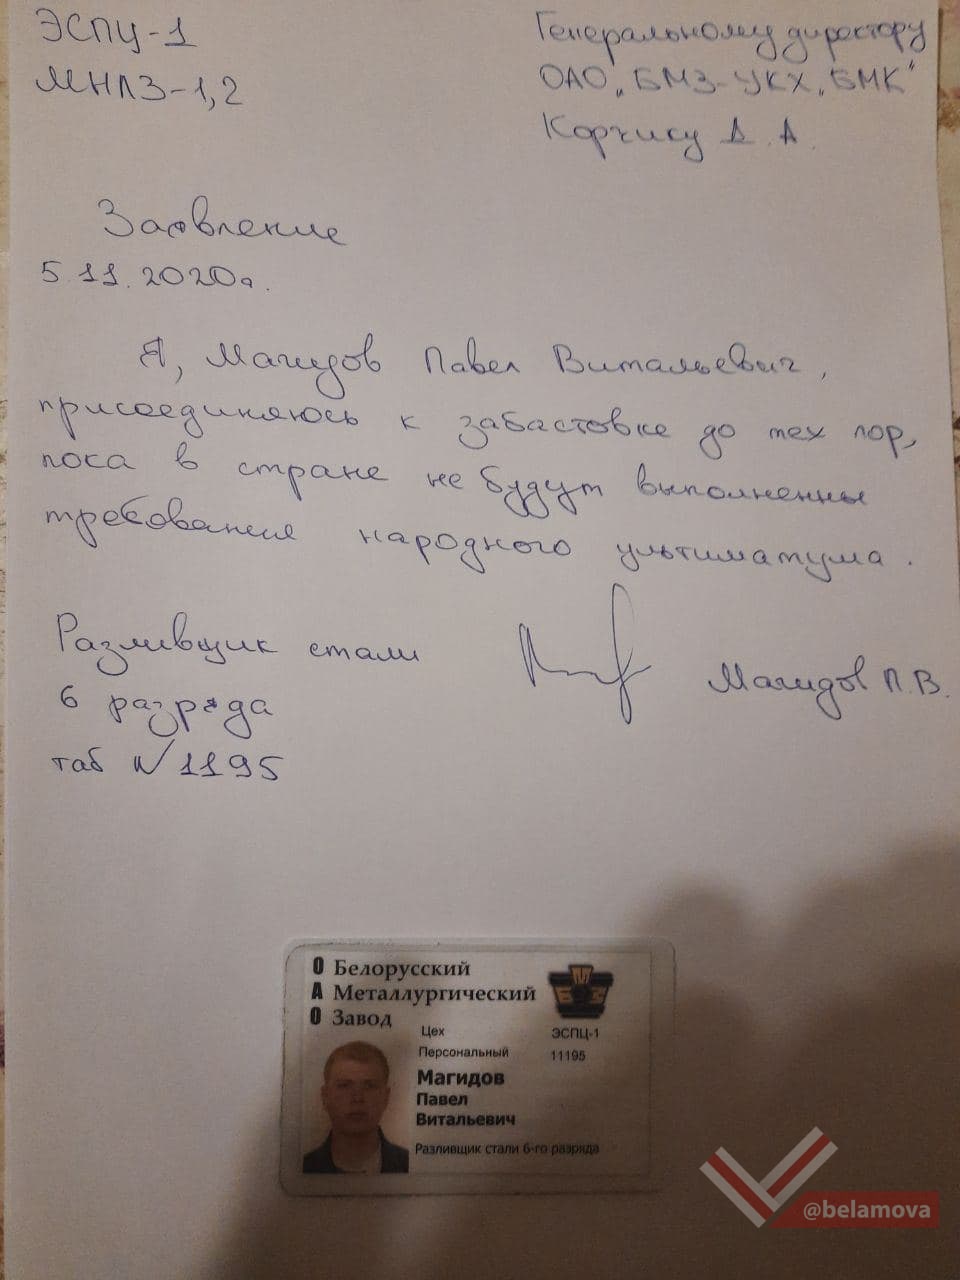 ЭСПЦ-1
МНЛЗ-1,2
Генеральному директору
ОАО „БМЗ-УКХ „БМК"
Корчику Д. А.
Заявление
5.11.2020г.
Я, Магидов Павел Витальевич,
присоединяюсь к забастовке до тех пор,
пока в стране не будут выполненны
требования народного ультиматума.
Разливщик стали
6 разряда
таб №1195
Магидов П.В.
О Белорусский
А Металлургический
О Завод
Цех ЭСПЦ-1
Персональный 11195
Магидов
Павел
Витальевич
Разливщик стали 6-го разряда
@belamova